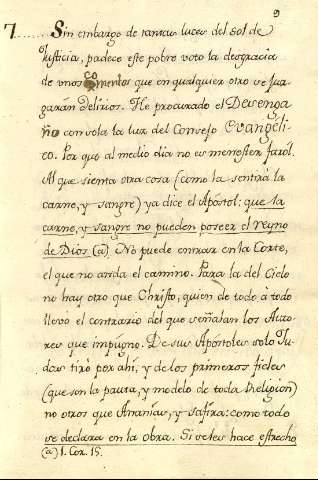 9
7 Sin embargo de tantas luces del sol de
Justicia, padece este pobre voto la desgracia
de unos comentos que en qualquier otro se juz
garan delirios. He procurado el Desenga
ño con sola la luz del Consejo Evangeli
co. Por que al medio dia no es menester farol.
Al que sienta otra cosa (como la sentirà la
carne, y sangre) ya dice el Apóstol: que la
carne, y sangre no pueden poseer el reyno
de Dios (a) No puede entrar en la Corte,
el que no anda el camino. Para la del Cielo
no hay otro que Christo, quien de todo à todo
llevò el contrario del que señalan los Auto-
res que impugno. De sus Apostoles solo Ju-
das tirò por ahi, y de los primeros fieles
(que son la pauta, y modelo de toda Religion)
no otros que Ananias, y Safira: como todo
se declara en la obra. Si se les hace estrecho
(a) 1. Cor. 15.